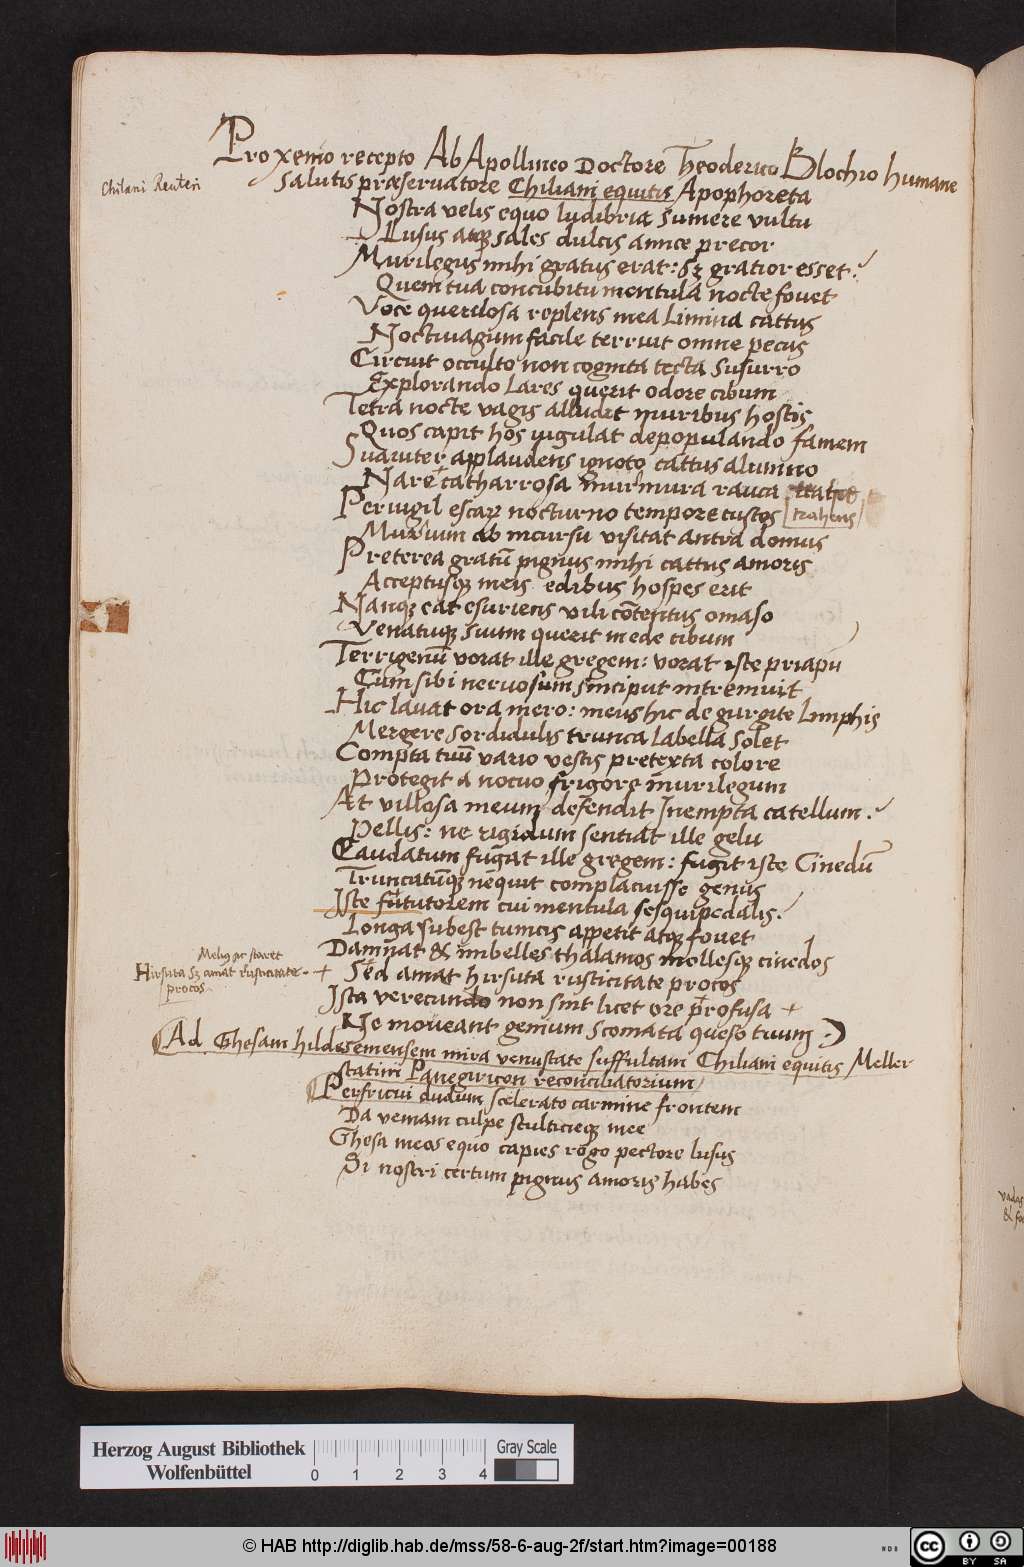 Pro xenio recepto Ab Apollineo Doctore Theoderico Blochio humane
Chilani Reuteri
salutis præservatore Chiliani equitis Apophoreta
Nostra velis equo ludibria sumere vultu
Lusus atq sales dulcis amice precor
Murilegus mihi gratus erat: sz gratior esset
Quem tua concubitu mentula nocte fovet
Voce querulosa replens mea Limina cattus
Noctivagum facile terruit omne pecus
Circuit occulto non cognita tecta susurro
Explorando Lares querit odore cibum
Tetra nocte vagis alludit muribus hostis
Quos capit hos iugulat depopulando famem
Suaviter applaudens ignoto cattus alumno
Nare catharrosa murmura rauca
Pervigil escar nocturno tempore custos trahens
Murium ab incursu visitat antra domus
Preterea gratū pignus mihi cattus amoris
Acceptusq meis edibus hospes erit
Nanq cat esuriens vili cōtentus omaso
Venatuq suum querit in ede cibum
Terrigenū vorat ille gregem: vorat iste priapū
Cum sibi nervosum sinciput intremuit
Hic lavat ora mero: meus hic de gurgite Limphis
Mergere sordidulis trunca Labella solet
Compta tuū vario vestis pretexta colore
Protegit a nocuo frigore murilegum
At villosa meum defendit Inempta catellum
Pellis: ne rigidum sentiat ille gelu
Caudatum fugat ille gregem: fugit iste Cinedū
Truncatūq nequit complacuisse genus
Iste fututorem cui mentula sesquipedalis
Longa subest tumcis appetit atq fovet
Damnat & imbelles thalamos mollesq cinedos
Melius sic staret
Hirsuta sz amat rusticitate
procos
+ Sed amat hirsuta rusticitate procos
Ista verecundo non sint licet ore profusa +
Ne moveant genium scomata queso tuum
Ad Ghesam hildesemensem mira venustate suffultam Chiliani equitis Meller
statini Panegiricon reconciliatorium
Perfricui dudum scelerato carmine frontem
Da veniam culpe stulticieq mee
Ghesa meos equo capies rogo pectore lusus
Si nostri certum pignus amoris habes
Herzog August Bibliothek
Wolfenbüttel
0 1 2 3 4
Gray Scale
© HAB http://diglib.hab.de/mss/58-6-aug-2f/start.htm?image=00188
cc BY SA